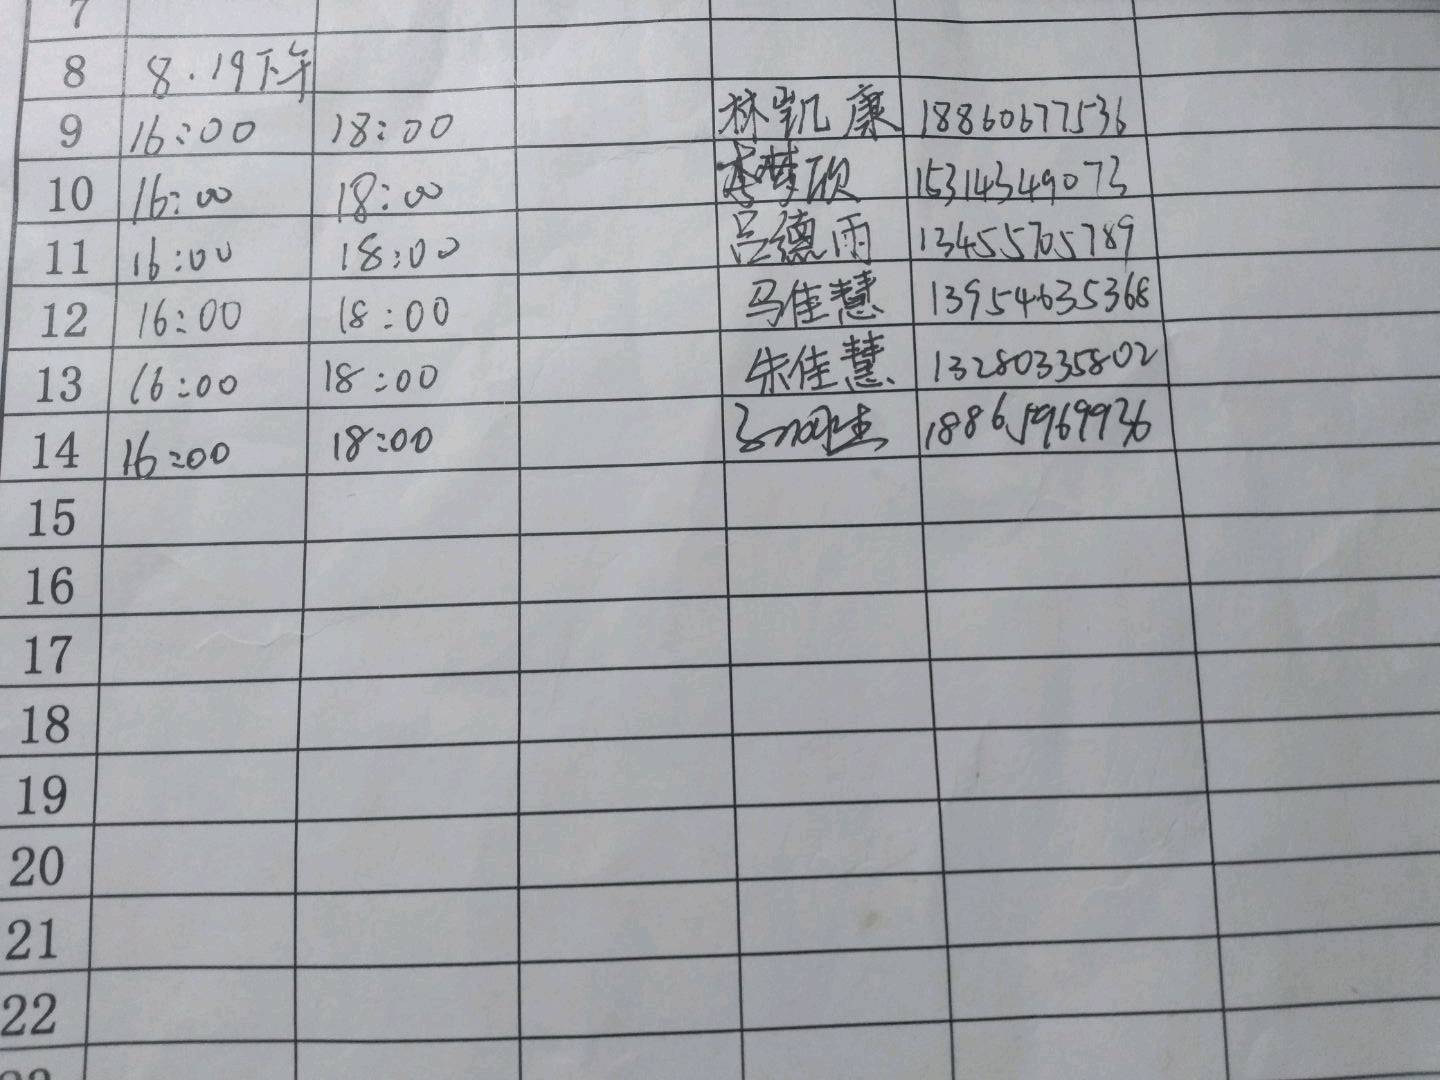 7
8 8.19下午
9 16:00 18:00 林凯康 18860677536
10 16:00 18:00 李梦欣 15314349073
11 16:00 18:00 吕德雨 13455705789
12 16:00 18:00 马佳慧 13954635368
13 16:00 18:00 朱佳慧 13280335802
14 16:00 18:00 18865969936
15
16
17
18
19
20
21
22